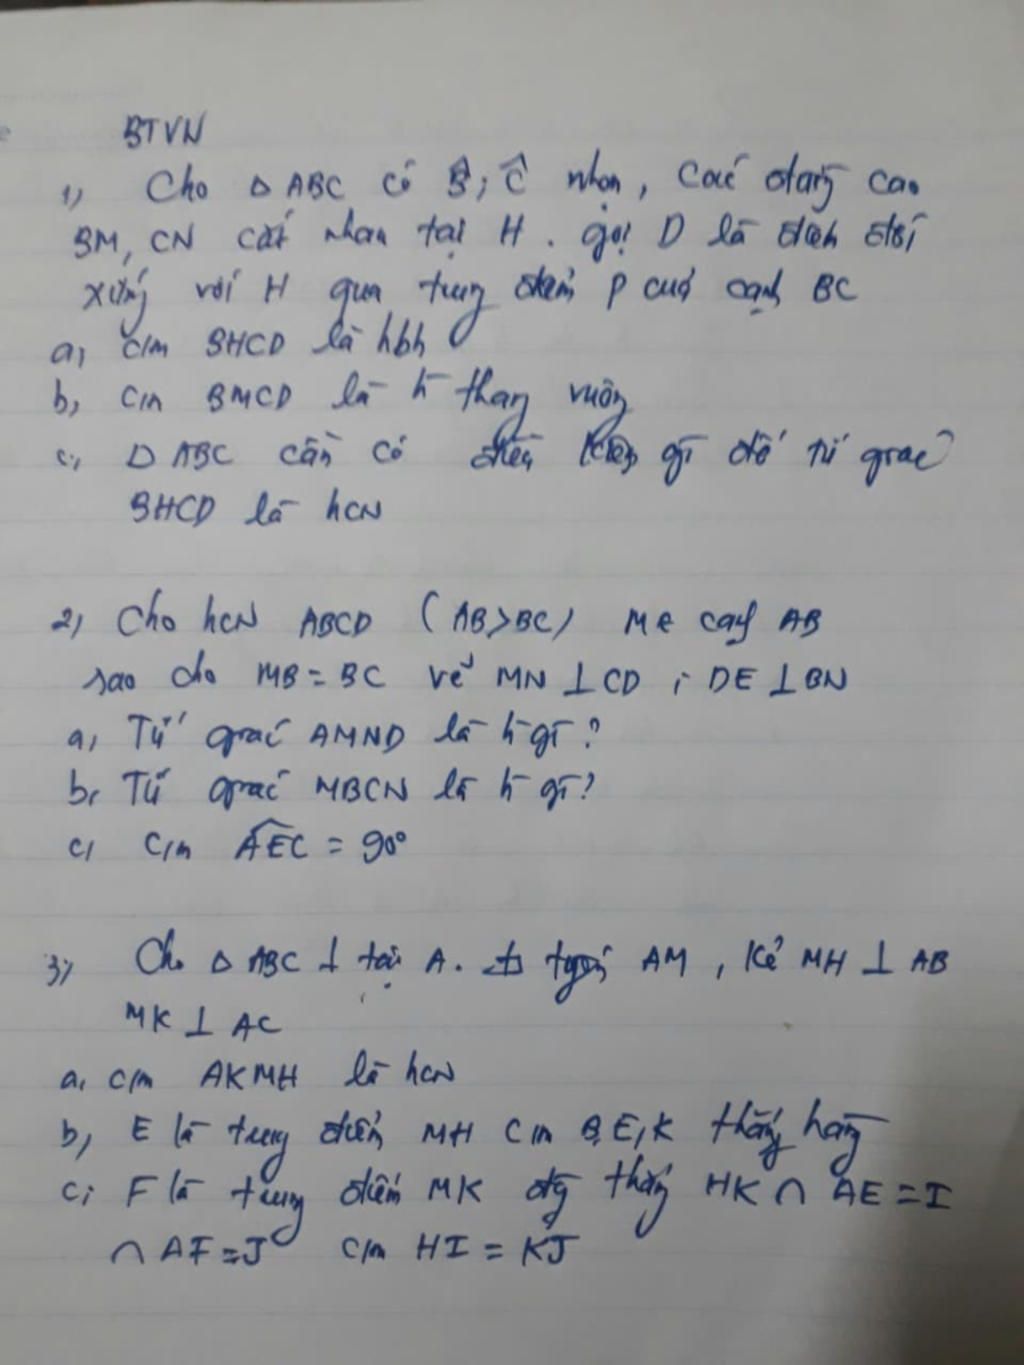 BTVN
1, Cho Δ ABC có B̂, Ĉ nhọn, các đường cao
BM, CN cắt nhau tại H. gọi D là điểm đối
xứng với H qua trung điểm P của cạnh BC
a, c/m BHCD là hbh
b, c/m BMCD là h̄ thang vuông
c, Δ ABC cần có điều kiện gì để tứ giác
BHCD là hcN
2, Cho hcN ABCD (AB>BC) M∈ cạnh AB
sao cho MB = BC vẽ MN ⊥ CD ; DE ⊥ BN
a, Tứ giác AMND là h̄ gì?
b, Tứ giác MBCN là h̄ gì?
c, c/m AEC = 90°
3, Cho Δ ABC ⊥ tại A. tuyến AM, kẻ MH ⊥ AB
MK ⊥ AC
a, c/m AKMH là hcN
b, E là trung điểm MH c/m B,E,K thẳng hàng
c, F là trung điểm MK đg thẳng HK ∩ AE = I
∩ AF = J c/m HI = KJ